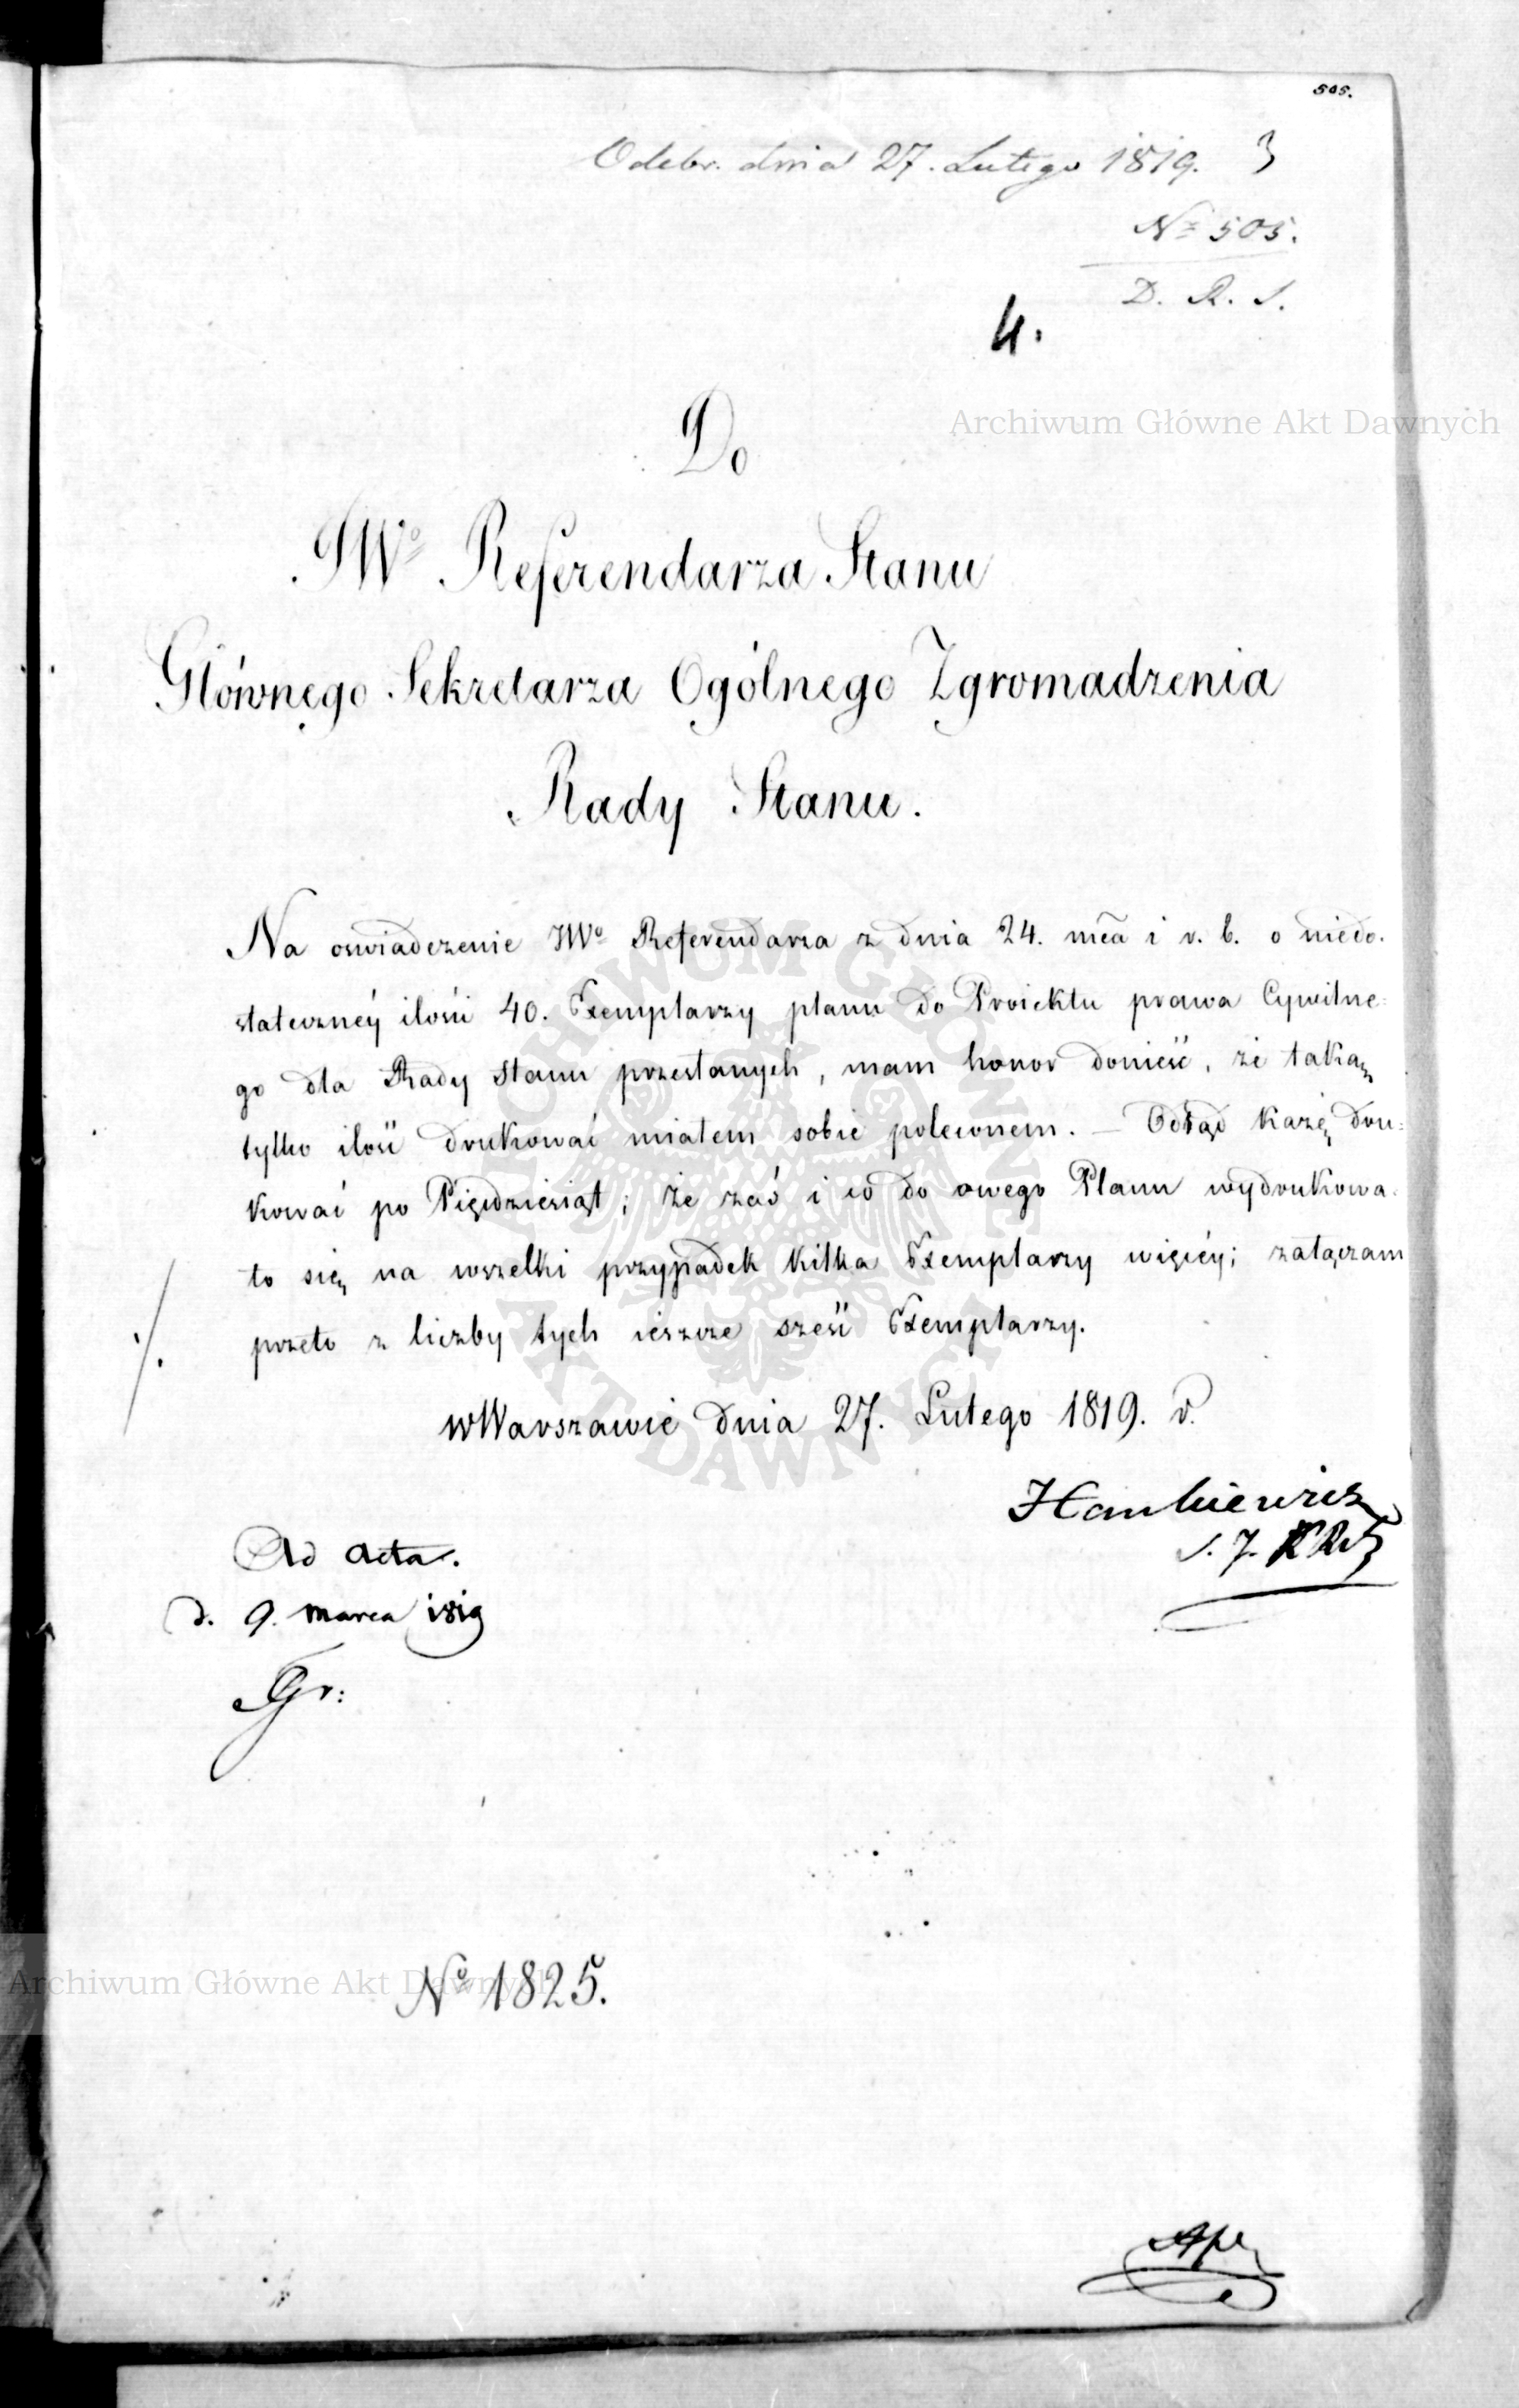 505.
Odebr. dnia 27. Lutego 1819. 3
No 505.
D. R. S.
4.
Archiwum Główne Akt Dawnych
Do
JWo Referendarza Stanu
Głównego Sekretarza Ogólnego Zgromadzenia
Rady Stanu.
Na oswiadczenie JWo Referendarza z dnia 24. mca i r. b. o niedo-
stateczney ilości 40. Exemplarzy planu do Proiektu prawa Cywilne-
go dla Rady Stanu przesłanych, mam honor donieść, że taką
tylko ilość drukować miałem sobie poleconem. — Odtąd każę dru-
kować po Pięćdziesiąt; że zaś i co do owego Planu wydrukowa-
ło się na wszelki przypadek kilka Exemplarzy więcéy; załączam
przeto z liczby tych ieszcze sześć Exemplarzy.
wWarszawie dnia 27. Lutego 1819. r.
Hankiewicz
S. J.
Ad acta.
d. 9. marca 1819
Gr:
No 1825.
Archiwum Główne Akt Dawnych
ARCHIWUM GŁÓWNE
AKT DAWNYCH